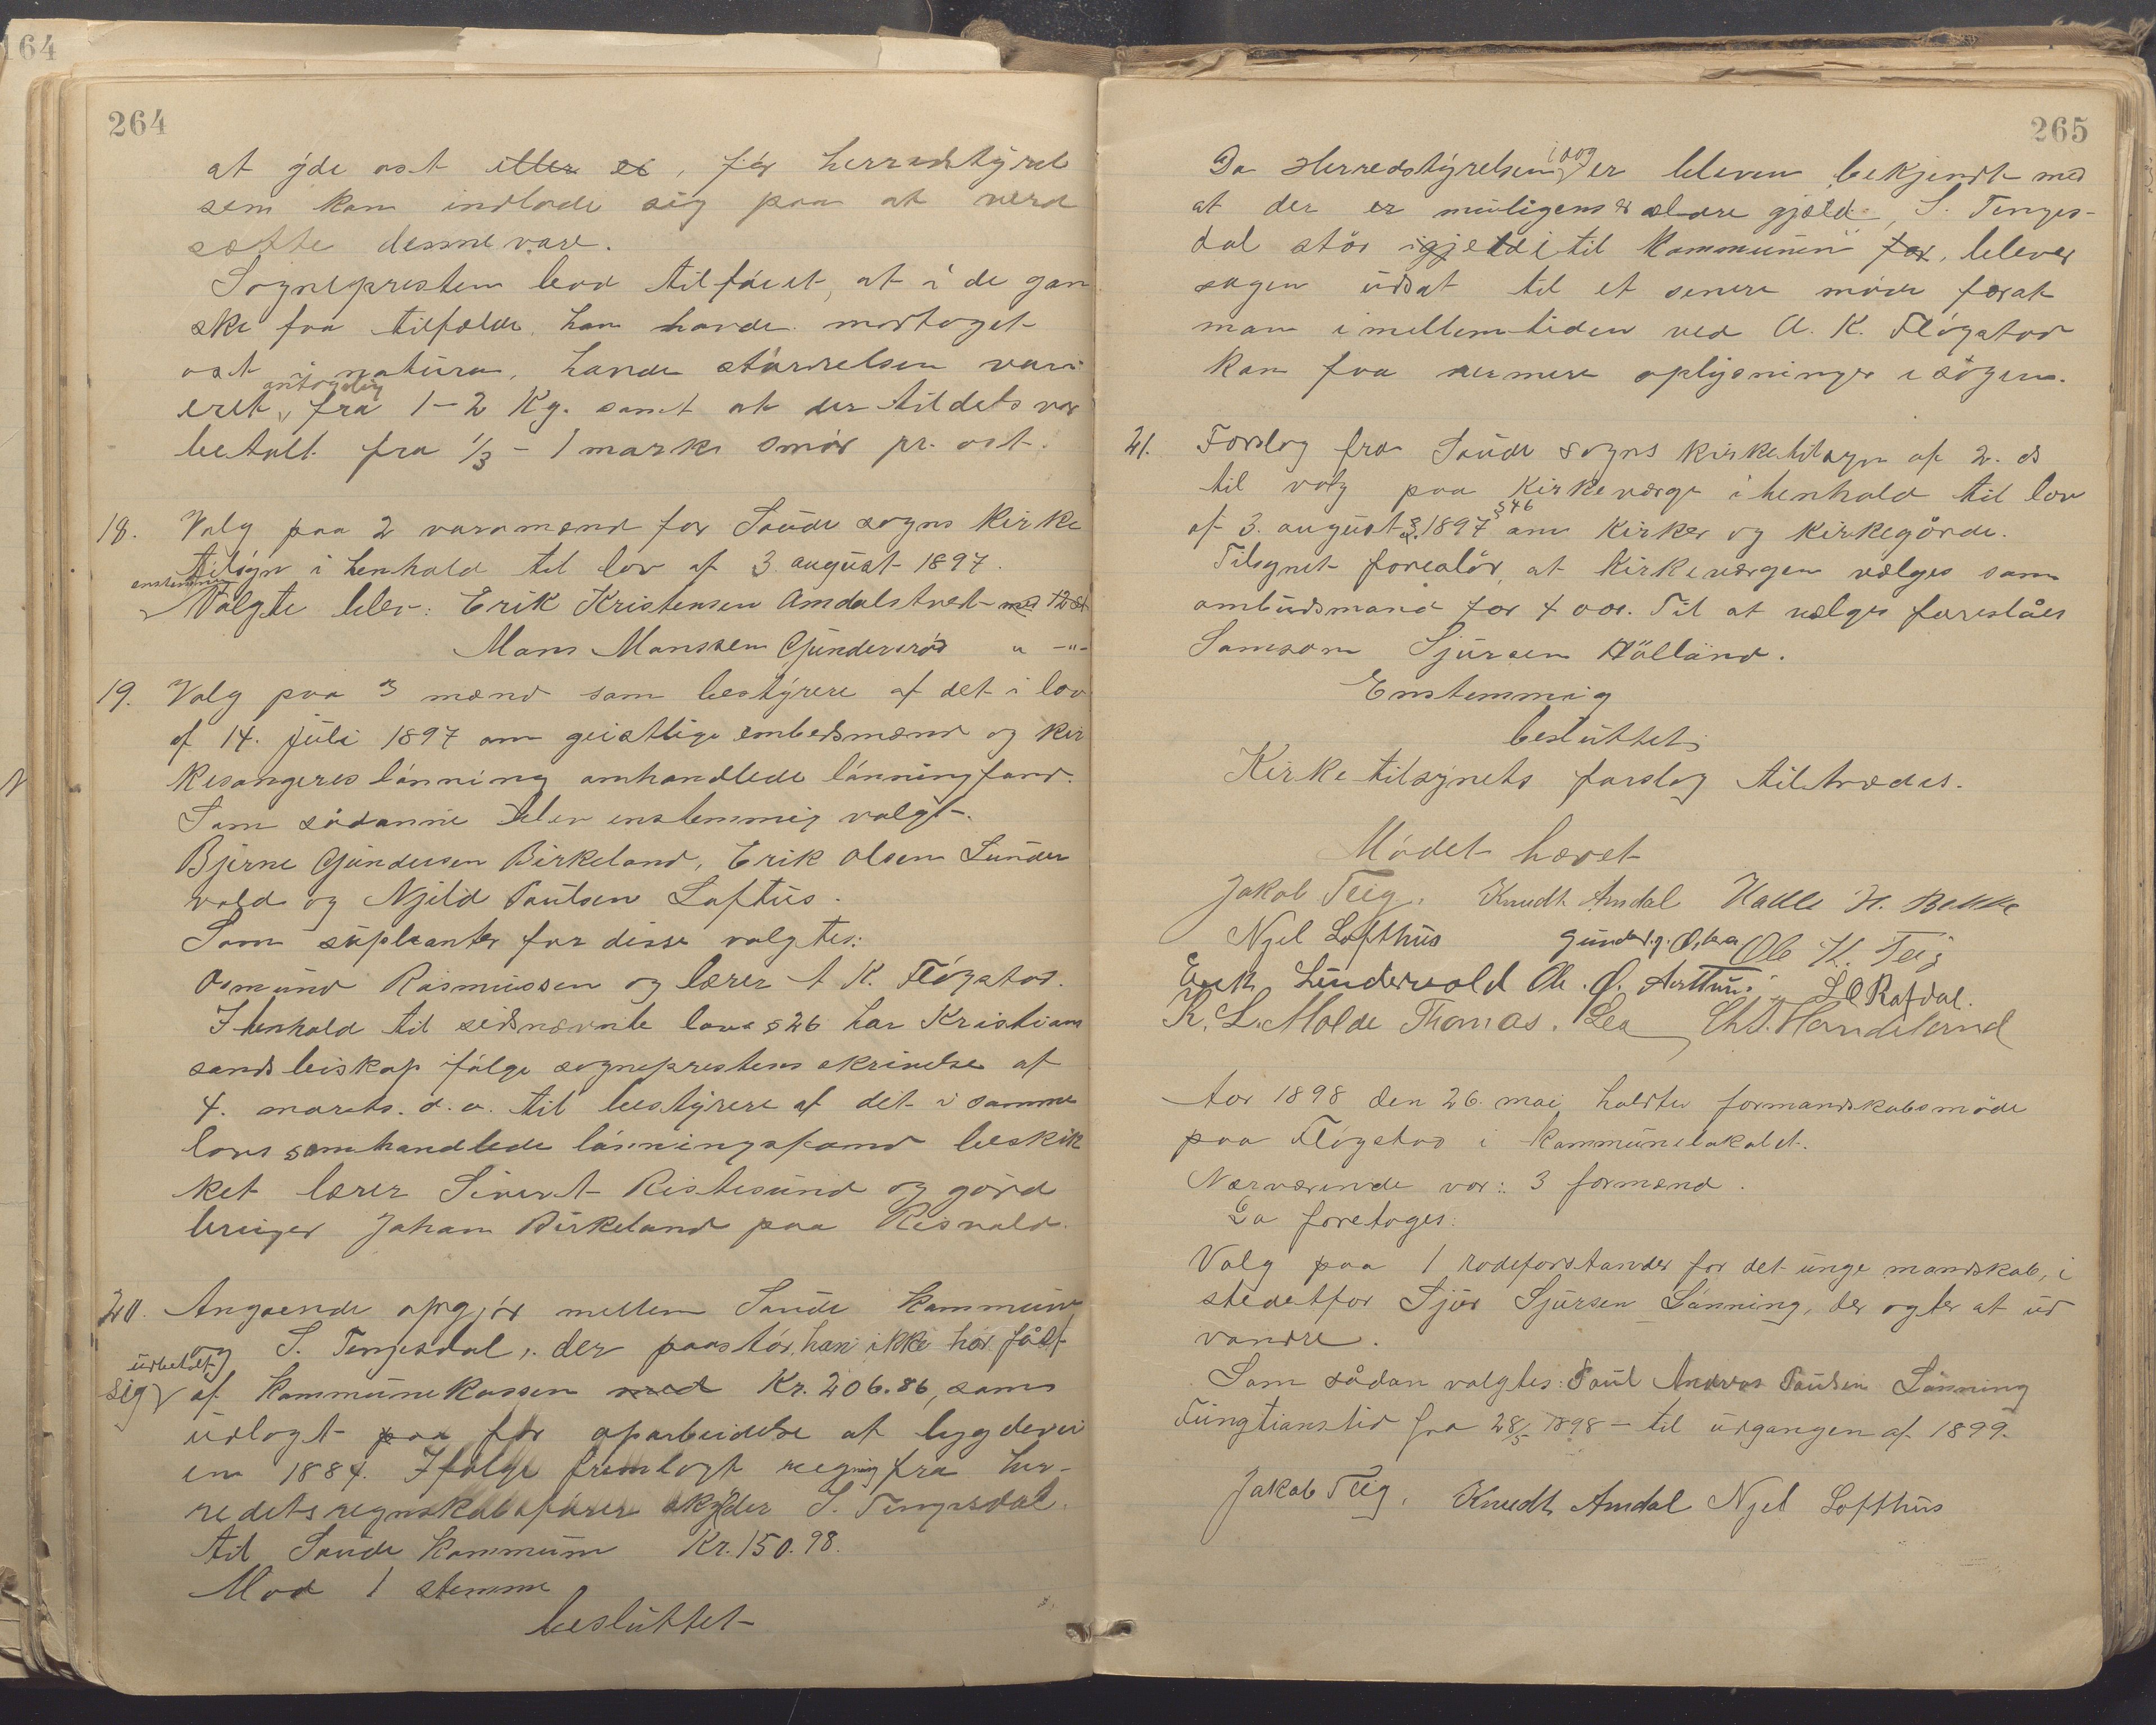 164
264
at yde ost eller ei, før herredstyret
som kan indlade sig paa at værd
sætte denne vare.
Sognepresten bad tilføiet, at i de gan
ske faa tilfælde han havde modtaget
ost i natura, havde størrelsen vari
eret antagelig fra 1-2 Kg. samt at der tildels var
betalt fra 1/3 - 1 marks smør pr. ost.
18. Valg paa 2 varamænd for Saude sogns kirke
tilsyn i henhold til lov af 3 august 1897.
enstemmig
Valgte blev: Erik Kristensen Amdalstvedt med 12 st
Mans Monssen Gundersrød " -"-
19. Valg paa 3 mænd som bestyrere af det i lov
af 14. juli 1897 om geistlige embedsmænd og kir
kesangeres lønning omhandlede lønningsfond.
Som sådanne blev enstemmig valgt.
Bjerne Gundersen Birkeland, Erik Olsen Sunder
vold og Njeld Paulsen Loftus.
Som supleanter for disse valgtes:
Osmund Rasmussen og lærer A. K. Fløgstad.
I henhold til sidsnævnte lovs § 26 har Kristian
sands biskop ifølge sogneprestens skrivelse af
4. marts. d. a. til bestyrere af det i samme
lovs omhandlede lønningsfond beskik
ket lærer Sivert Ristesund og gård
bruger Johan Birkeland paa Risvold.
20. Angaaende opgjør mellem Saude kommune
og S. Tengesdal, der paastår, han ikke har fået
udbetalt sig af kommunekassen med Kr. 206.86, som
udlagt paa for oparbeidelse af bygdevei
en 1884. Ifølge fremlagt regning fra her-
redets regnskabsfører skylder S. Tengesdal
til Saude kommune Kr. 150.98.
Mod 1 stemme
besluttet
265
Da Herredstyrelsen idag er bleven bekjendt med
at der er muligens er ældre gjæld, S. Tenges-
dal står i gjeld i til kommunen for, blever
sagen udsat til et senere møde forat
man imellemtiden ved A. K. Fløgstad
kan faa nermere oplysninger i sagen.
21. Forslag fra Saude sogns kirketilsyn af 2. ds
til valg paa Kirkeværge i henhold til lov
af 3. august 1897 § 46 om Kirker og kirkegårde.
Tilsynet foreslår, at kirkeværgen vælges som
ombudsmand for 4 aar. Til at vælges foreslåes
Samson Sjursen Hålland.
Enstemmig
besluttet
Kirketilsynets forslag tiltrædes.
Mødet hævet
Jakob Teig. Knudt Amdal Halle H. Bakke
Njel Lofthus Gunder. g. Østera Ole K. Teig
Erik Sundervold Ole. O. Arthun. S O Rafdal.
K. L. Molde Thomas. Lea Chr. S. Handeland
Aar 1898 den 26. mai holdtes formandskabsmøde
paa Fløgstad i kommunelokalet.
Nærværende var: 3 formænd.
Da foretoges:
Valg paa 1 rodeforstander for det unge mandskab, i
stedetfor Sjur Sjursen Lønning, der agter at ud
vandre.
Som sådan valgtes: Paul Andreas Paulsen Lønning
Fungtianstid fra 28/5 1898 - til udgangen af 1899.
Jakob Teig. Knudt Amdal Njel Lofthus